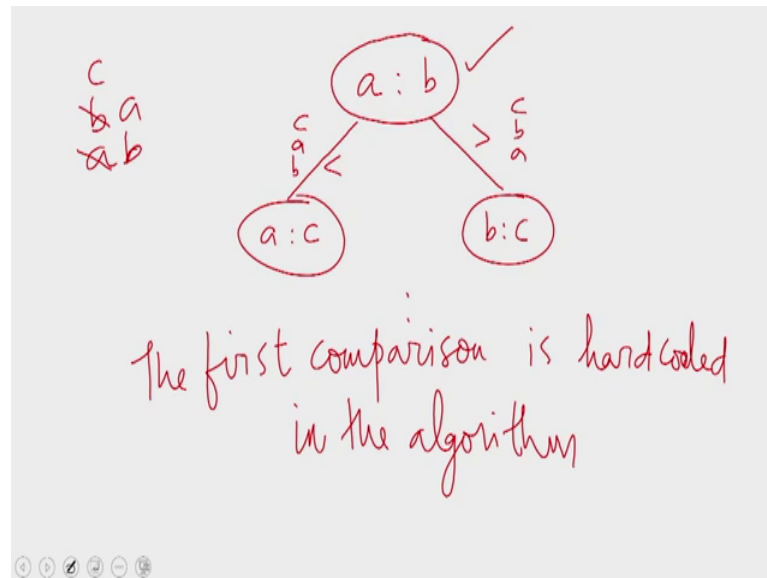 a : b ✓
c
b a
a b
c
a
b <
> c
b
a
a : c
b : c
:
The first comparison is hardcoded
in the algorithm